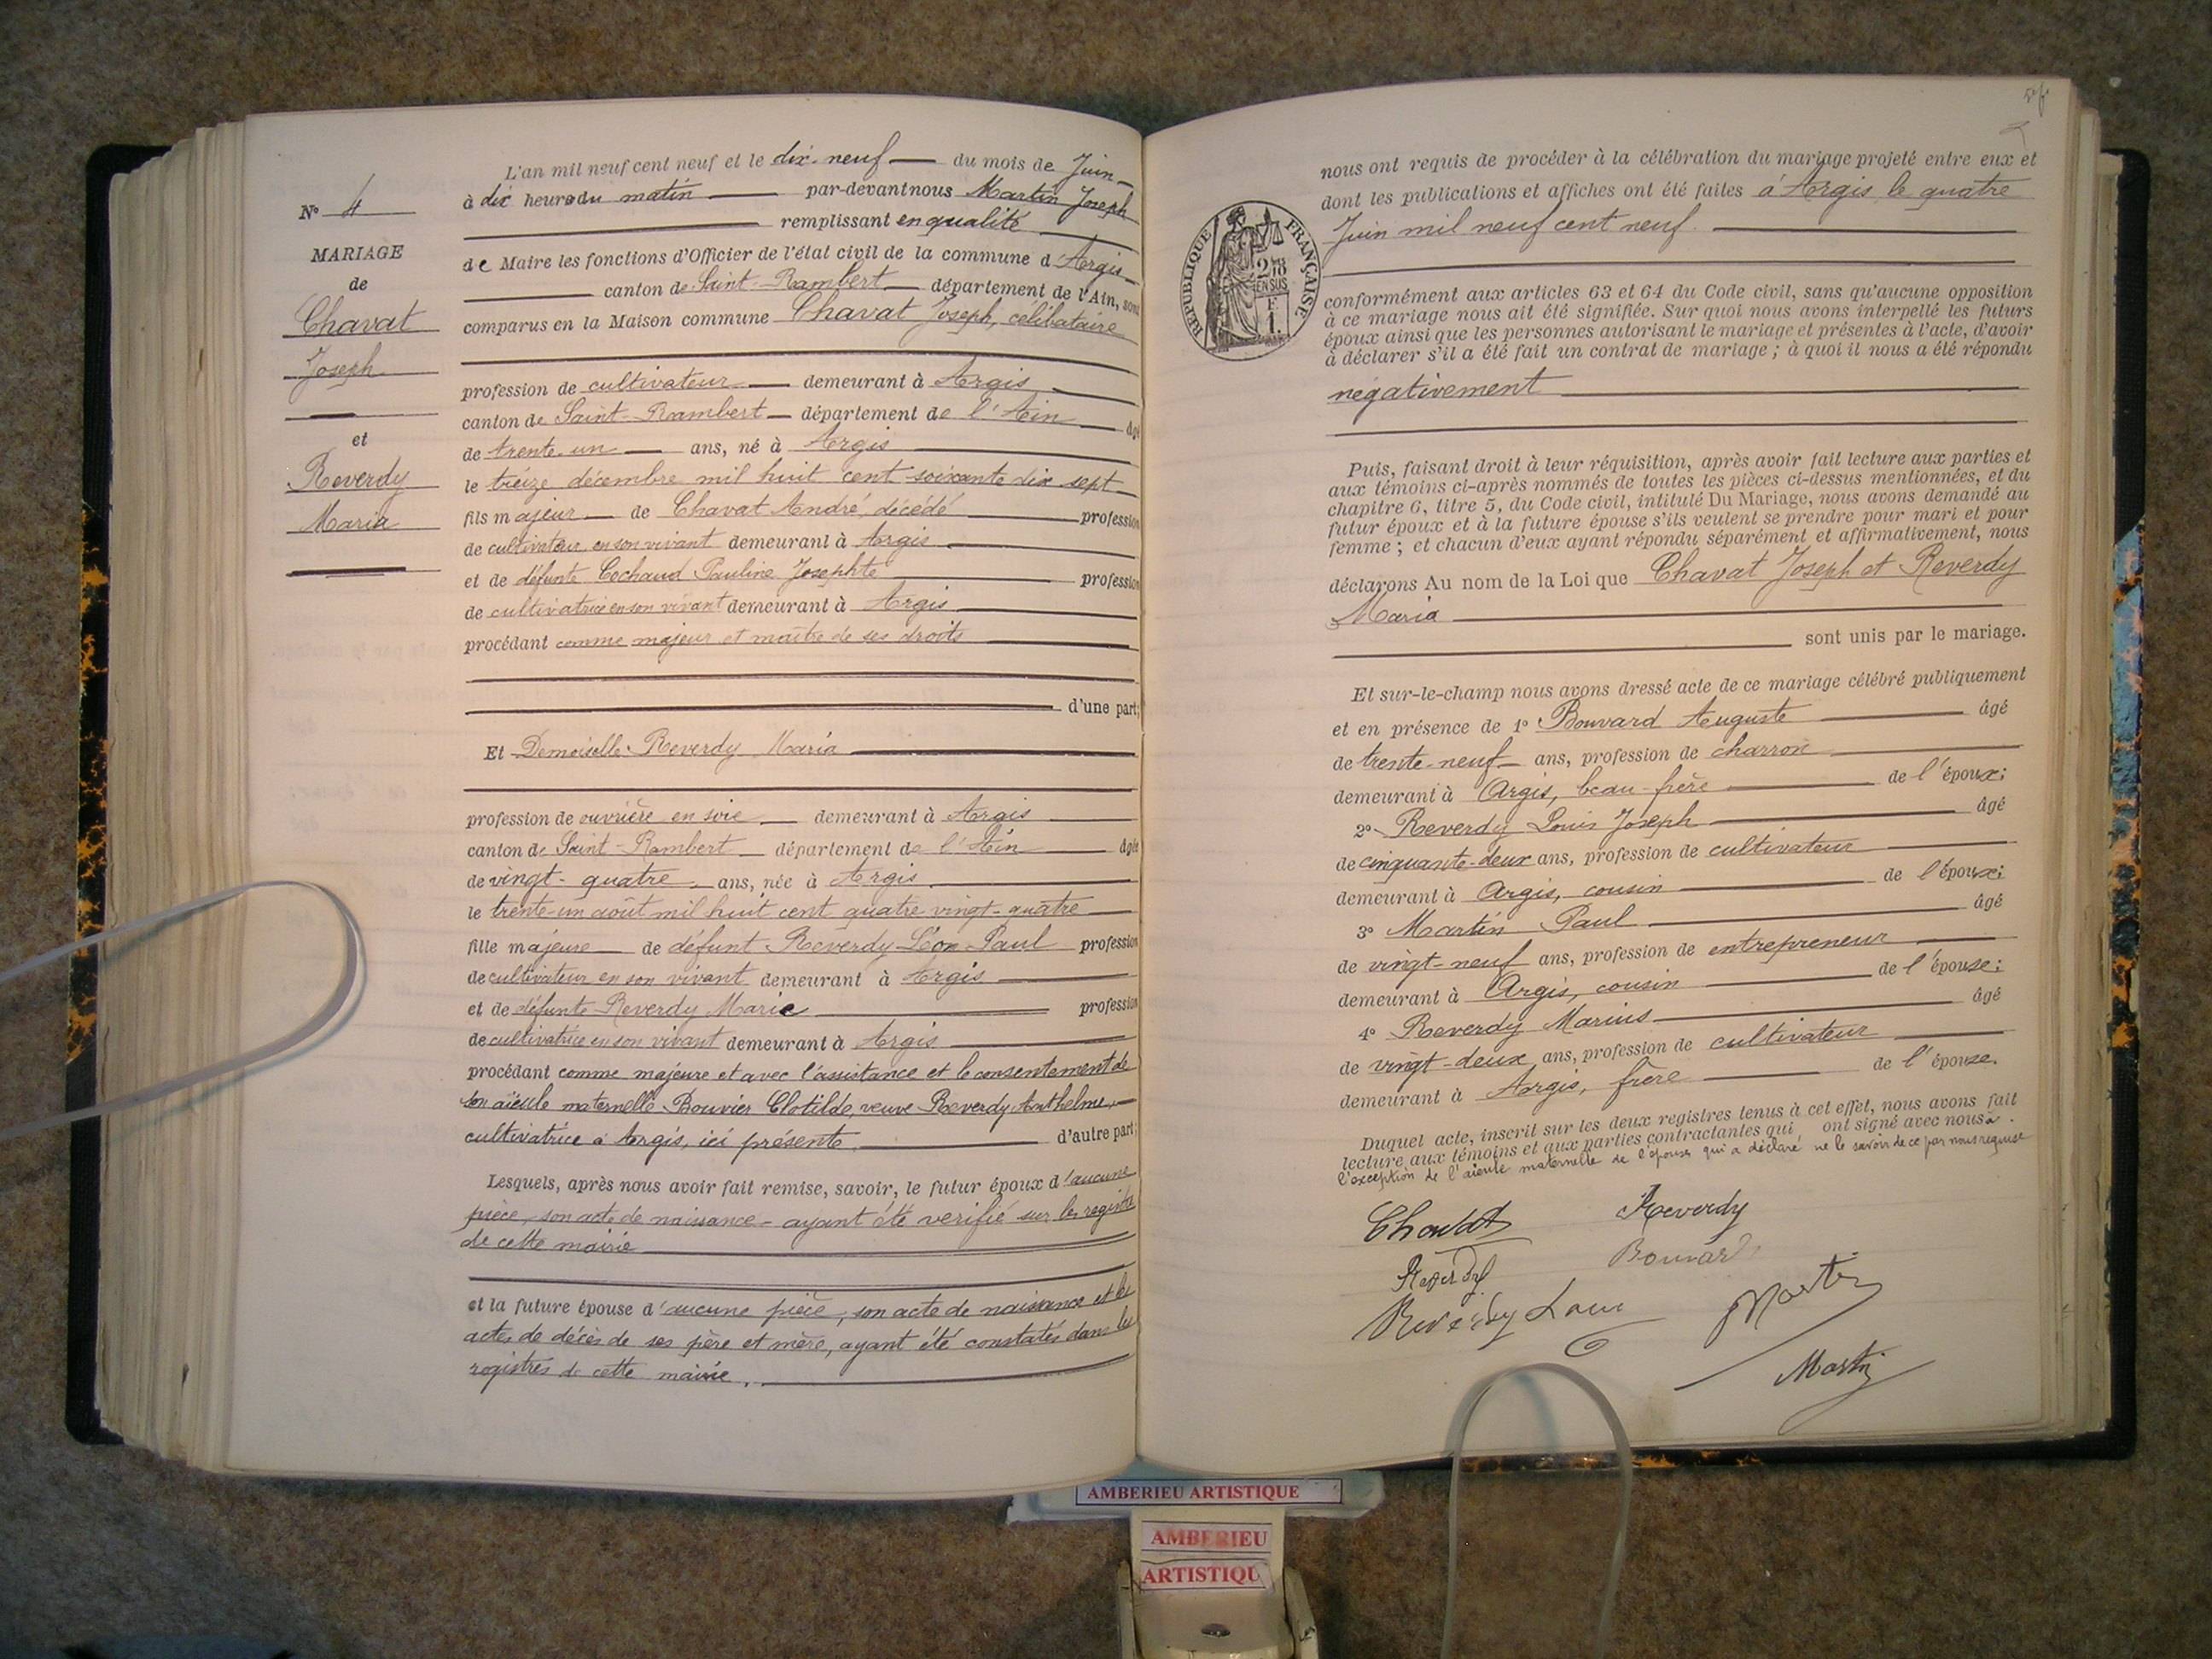 N° 4
MARIAGE
de
Chavat
Joseph
et
Reverdy
Maria
L'an mil neuf cent neuf et le dix-neuf du mois de Juin
à dix heures du matin par-devant nous Martin Joseph
remplissant en qualité
de Maire les fonctions d'Officier de l'état civil de la commune d'Argis
canton de Saint-Rambert département de l'Ain, sont
comparus en la Maison commune Chavat Joseph, célibataire
profession de cultivateur demeurant à Argis
canton de Saint-Rambert département de l'Ain âgé
de trente-un ans, né à Argis
le treize décembre mil huit cent soixante dix sept
fils majeur de Chavat André, décédé profession
de cultivateur en son vivant demeurant à Argis
et de défunte Cochaud Pauline Josephte profession
de cultivatrice en son vivant demeurant à Argis
procédant comme majeur et maître de ses droits
d'une part;
Et Demoiselle Reverdy Maria
profession de ouvrière en soie demeurant à Argis
canton de Saint-Rambert département de l'Ain âgée
de vingt-quatre ans, née à Argis
le trente-un août mil huit cent quatre vingt-quatre
fille majeure de défunt Reverdy Léon-Paul profession
de cultivateur en son vivant demeurant à Argis
et de défunte Reverdy Marie profession
de cultivatrice en son vivant demeurant à Argis
procédant comme majeure et avec l'assistance et le consentement de
son aïeule maternelle Bouvier Clotilde, veuve Reverdy Anthelme,
cultivatrice à Argis, ici présente. d'autre part;
Lesquels, après nous avoir fait remise, savoir, le futur époux d'aucune
pièce, son acte de naissance ayant été verifié sur les registres
de cette mairie
et la future épouse d'aucune pièce, son acte de naissance et les
actes de décès de ses père et mère, ayant été constatés dans les
registres de cette mairie.
nous ont requis de procéder à la célébration du mariage projeté entre eux et
dont les publications et affiches ont été faites à Argis le quatre
Juin mil neuf cent neuf.
RÉPUBLIQUE FRANÇAISE
2/10
EN SUS
F
1.
conformément aux articles 63 et 64 du Code civil, sans qu'aucune opposition
à ce mariage nous ait été signifiée. Sur quoi nous avons interpellé les futurs
époux ainsi que les personnes autorisant le mariage et présentes à l'acte, d'avoir
à déclarer s'il a été fait un contrat de mariage; à quoi il nous a été répondu
négativement
Puis, faisant droit à leur réquisition, après avoir fait lecture aux parties et
aux témoins ci-après nommés de toutes les pièces ci-dessus mentionnées, et du
chapitre 6, titre 5, du Code civil, intitulé Du Mariage, nous avons demandé au
futur époux et à la future épouse s'ils veulent se prendre pour mari et pour
femme; et chacun d'eux ayant répondu séparément et affirmativement, nous
déclarons Au nom de la Loi que Chavat Joseph et Reverdy
Maria
sont unis par le mariage.
Et sur-le-champ nous avons dressé acte de ce mariage célébré publiquement
et en présence de 1° Bouvard Auguste âgé
de trente-neuf ans, profession de charron
demeurant à Argis, beau-frère de l'époux;
2° Reverdy Louis Joseph âgé
de cinquante-deux ans, profession de cultivateur
demeurant à Argis, cousin de l'époux;
3° Martin Paul âgé
de vingt-neuf ans, profession de entrepreneur
demeurant à Argis, cousin de l'épouse;
4° Reverdy Marius âgé
de vingt-deux ans, profession de cultivateur
demeurant à Argis, frère de l'épouse.
Duquel acte, inscrit sur les deux registres tenus à cet effet, nous avons fait
lecture aux témoins et aux parties contractantes qui ont signé avec nous à
l'exception de l'aïeule maternelle de l'épouse qui a déclaré ne le savoir de ce par nous requise
Chavat Reverdy
Reverdy Bouvard
Reverdy Louis Martin
Martin
AMBERIEU ARTISTIQUE
AMBERIEU
ARTISTIQU